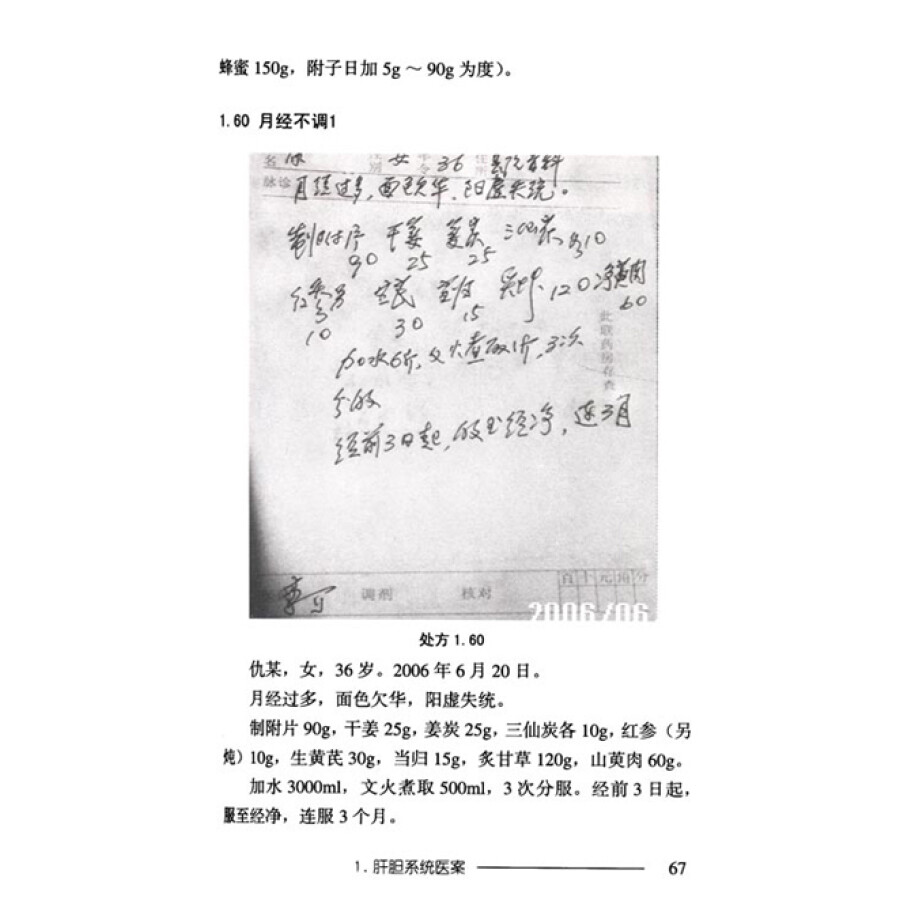 蜂蜜 150g，附子日加 5g ～ 90g 为度）。
1.60 月经不调1
名 性别 女 年令 36 住所
脉诊 月经过多，面色欠华，阳虚失统。
制附片 干姜 姜炭 三仙炭 各10
90 25 25
红参另 生芪 当归 120 净萸肉
10 30 15 60
加水6斤，文火煮取1斤，3次
分服
经前3日起，服至经净，连3月
此联药房存查
调剂 核对 百 十 元 角 分
2006/06
处方 1.60
仇某，女，36 岁。2006 年 6 月 20 日。
月经过多，面色欠华，阳虚失统。
制附片 90g，干姜 25g，姜炭 25g，三仙炭各 10g，红参（另
炖）10g，生黄芪 30g，当归 15g，炙甘草 120g，山萸肉 60g。
加水 3000ml，文火煮取 500ml，3 次分服。经前 3 日起，
服至经净，连服 3 个月。
1. 肝胆系统医案 67